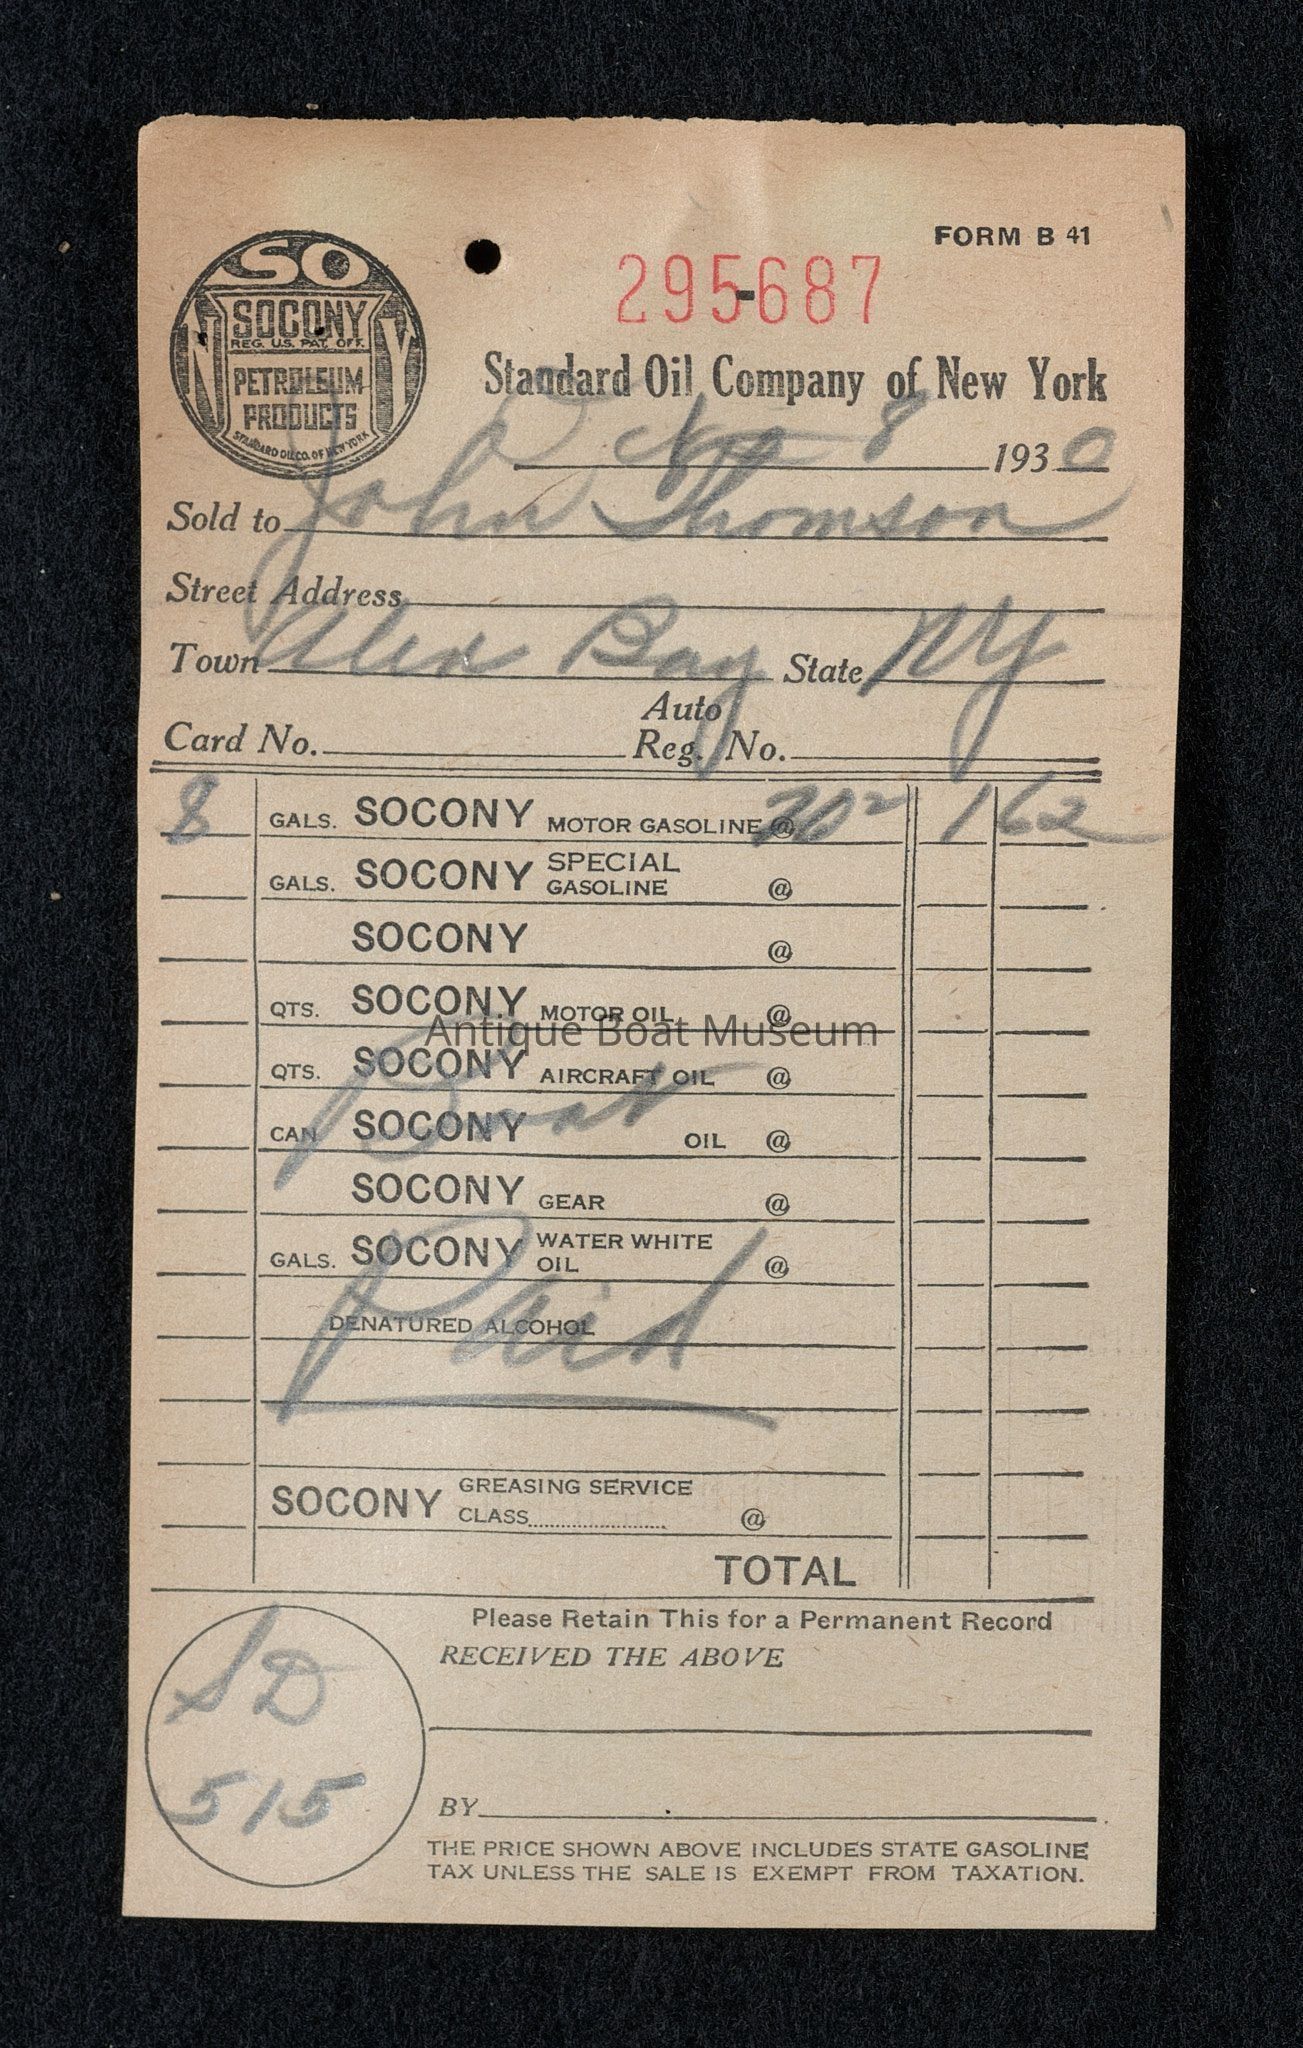 FORM B 41
SO
N Y
SOCONY
REG. U.S. PAT. OFF.
PETROLEUM
PRODUCTS
STANDARD OIL CO. OF NEW YORK
295-687
Standard Oil Company of New York
8 1930
Sold to John Thomson
Street Address
Town Alex Bay State NY
Auto
Card No. Reg. No.
8 GALS. SOCONY MOTOR GASOLINE @ 20² 1 62
GALS. SOCONY SPECIAL GASOLINE @
SOCONY @
QTS. SOCONY MOTOR OIL @
Antique Boat Museum
QTS. SOCONY AIRCRAFT OIL @
Boat
CAN SOCONY OIL @
SOCONY GEAR @
GALS. SOCONY WATER WHITE OIL @
Paid
DENATURED ALCOHOL
SOCONY GREASING SERVICE
CLASS @
TOTAL
Please Retain This for a Permanent Record
RECEIVED THE ABOVE
SD
515
BY
THE PRICE SHOWN ABOVE INCLUDES STATE GASOLINE
TAX UNLESS THE SALE IS EXEMPT FROM TAXATION.